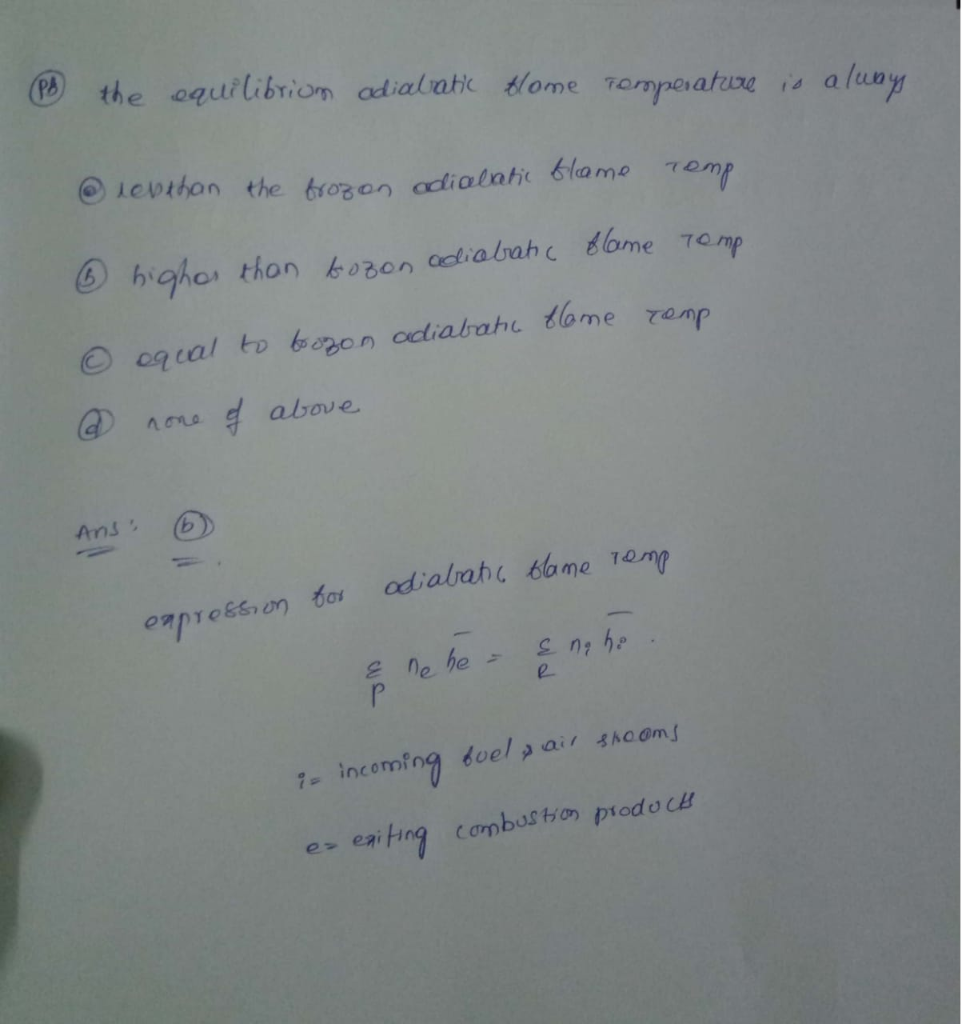 P8 the equilibriom adiabatic flame Temperature is always
a less than the frozen adiabatic flame Temp
b higher than fozen adiabatic flame Temp
c equal to frozen adiabatic flame Temp
d none of above
Ans: b
expression for adiabatic flame Temp
Σ ne h̅e = Σ ni h̅i.
P R
i= incoming fuel & air streams
e= exiting combustion products